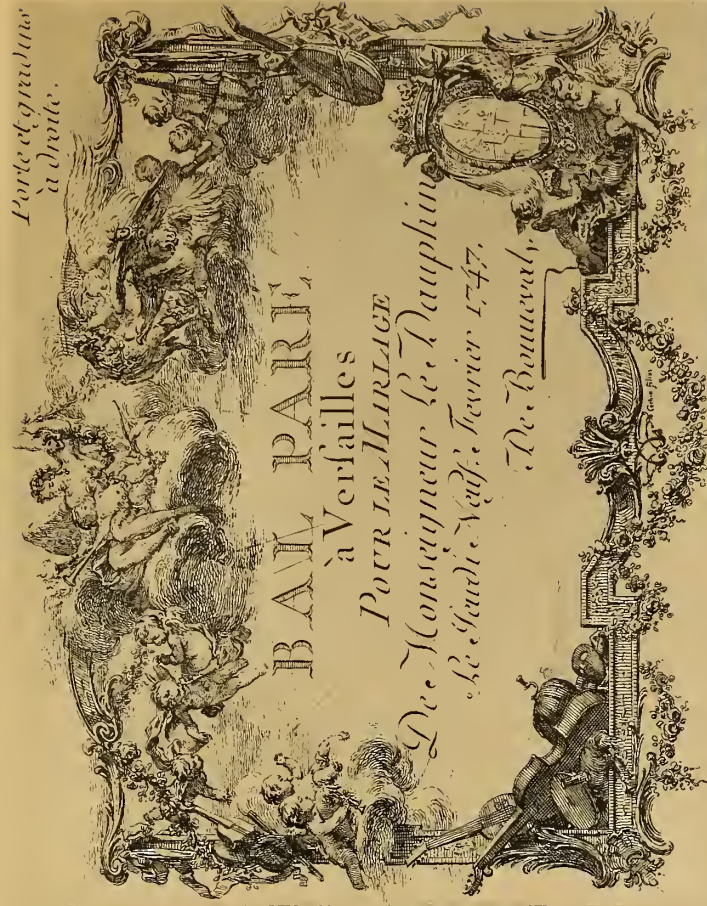 Porte et gradins
à droite.
BAL PARÉ
à Versailles
POUR LE MARIAGE
De Monseigneur Le Dauphin
Le Jeudi Neuf Fevrier 1747.
De Bonneval,
Cochin filius